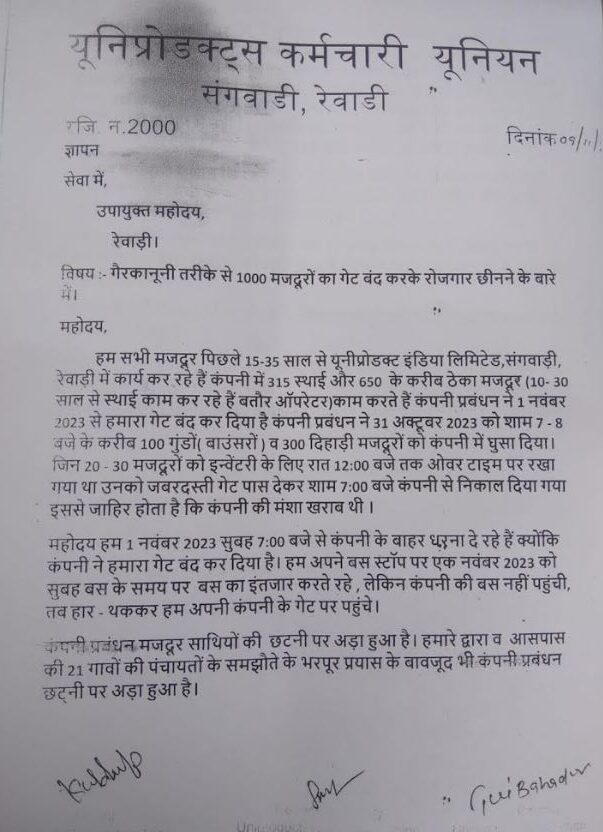 यूनिप्रोडक्ट्स कर्मचारी यूनियन
संगवाडी, रेवाडी
रजि. न.2000
दिनांक 09/11/
ज्ञापन
सेवा में,
उपायुक्त महोदय,
रेवाड़ी।
विषय :- गैरकानूनी तरीके से 1000 मजदूरों का गेट बंद करके रोजगार छीनने के बारे
में।
महोदय,
हम सभी मजदूर पिछले 15-35 साल से यूनीप्रोडक्ट इंडिया लिमिटेड,संगवाड़ी,
रेवाड़ी में कार्य कर रहे हैं कंपनी में 315 स्थाई और 650 के करीब ठेका मजदूर (10- 30
साल से स्थाई काम कर रहे हैं बतौर ऑपरेटर)काम करते हैं कंपनी प्रबंधन ने 1 नवंबर
2023 से हमारा गेट बंद कर दिया है कंपनी प्रबंधन ने 31 अक्टूबर 2023 को शाम 7 - 8
बजे के करीब 100 गुंडों( बाउंसरों ) व 300 दिहाड़ी मजदूरों को कंपनी में घुसा दिया।
जिन 20 - 30 मजदूरों को इन्वेंटरी के लिए रात 12:00 बजे तक ओवर टाइम पर रखा
गया था उनको जबरदस्ती गेट पास देकर शाम 7:00 बजे कंपनी से निकाल दिया गया
इससे जाहिर होता है कि कंपनी की मंशा खराब थी ।
महोदय हम 1 नवंबर 2023 सुबह 7:00 बजे से कंपनी के बाहर धरना दे रहे हैं क्योंकि
कंपनी ने हमारा गेट बंद कर दिया है। हम अपने बस स्टॉप पर एक नवंबर 2023 को
सुबह बस के समय पर बस का इंतजार करते रहे , लेकिन कंपनी की बस नहीं पहुंची,
तब हार - थककर हम अपनी कंपनी के गेट पर पहुंचे।
कंपनी प्रबंधन मजदूर साथियों की छटनी पर अड़ा हुआ है। हमारे द्वारा व आसपास
की 21 गावों की पंचायतों के समझौते के भरपूर प्रयास के बावजूद भी कंपनी प्रबंधन
छट्नी पर अड़ा हुआ है।
Kuldeep
Gui Bahadur